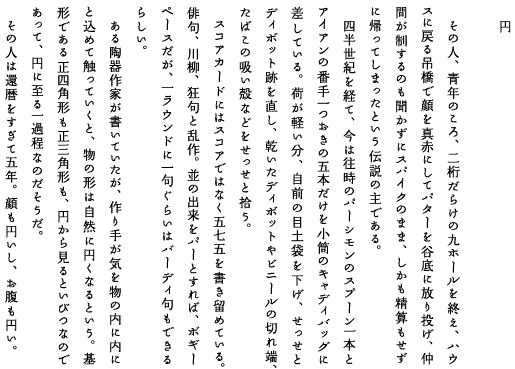 円
その人、青年のころ、二桁だらけの九ホールを終え、ハウ
スに戻る吊橋で顔を真赤にしてパターを谷底に放り投げ、仲
間が制するのも聞かずにスパイクのまま、しかも精算もせず
に帰ってしまったという伝説の主である。
四半世紀を経て、今は往時のパーシモンのスプーン一本と
アイアンの番手一つおきの五本だけを小筒のキャディバッグに
差している。荷が軽い分、自前の目土袋を下げ、せっせと
ディボット跡を直し、乾いたディボットやビニールの切れ端、
たばこの吸い殻などをせっせと拾う。
スコアカードにはスコアではなく五七五を書き留めている。
俳句、川柳、狂句と乱作。並の出来をパーとすれば、ボギー
ペースだが、一ラウンドに一句ぐらいはバーディ句もできる
らしい。
ある陶器作家が書いていたが、作り手が気を物の内に内に
と込めて触っていくと、物の形は自然に円くなるという。基
形である正四角形も正三角形も、円から見るといびつなので
あって、円に至る一過程なのだそうだ。
その人は還暦をすぎて五年。顔も円いし、お腹も円い。